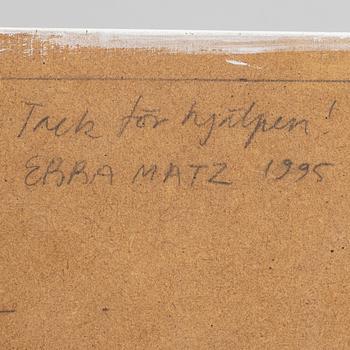 Tack för hjälpen!
EBBA MATZ 1995